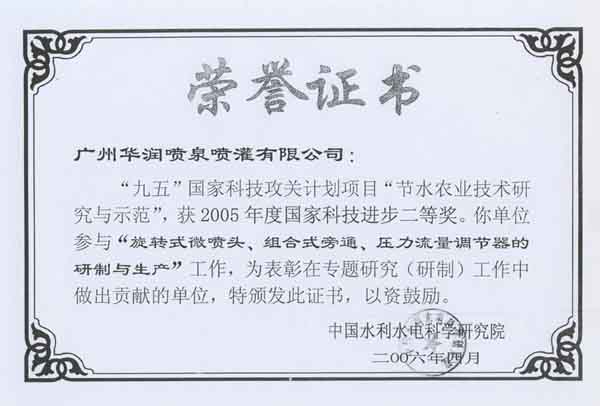 荣誉证书
广州华润喷泉喷灌有限公司：
“九五”国家科技攻关计划项目“节水农业技术研
究与示范”，获 2005 年度国家科技进步二等奖。你单位
参与“旋转式微喷头、组合式旁通、压力流量调节器的
研制与生产”工作，为表彰在专题研究（研制）工作中
做出贡献的单位，特颁发此证书，以资鼓励。
中国水利水电科学研究院
二〇〇六年四月